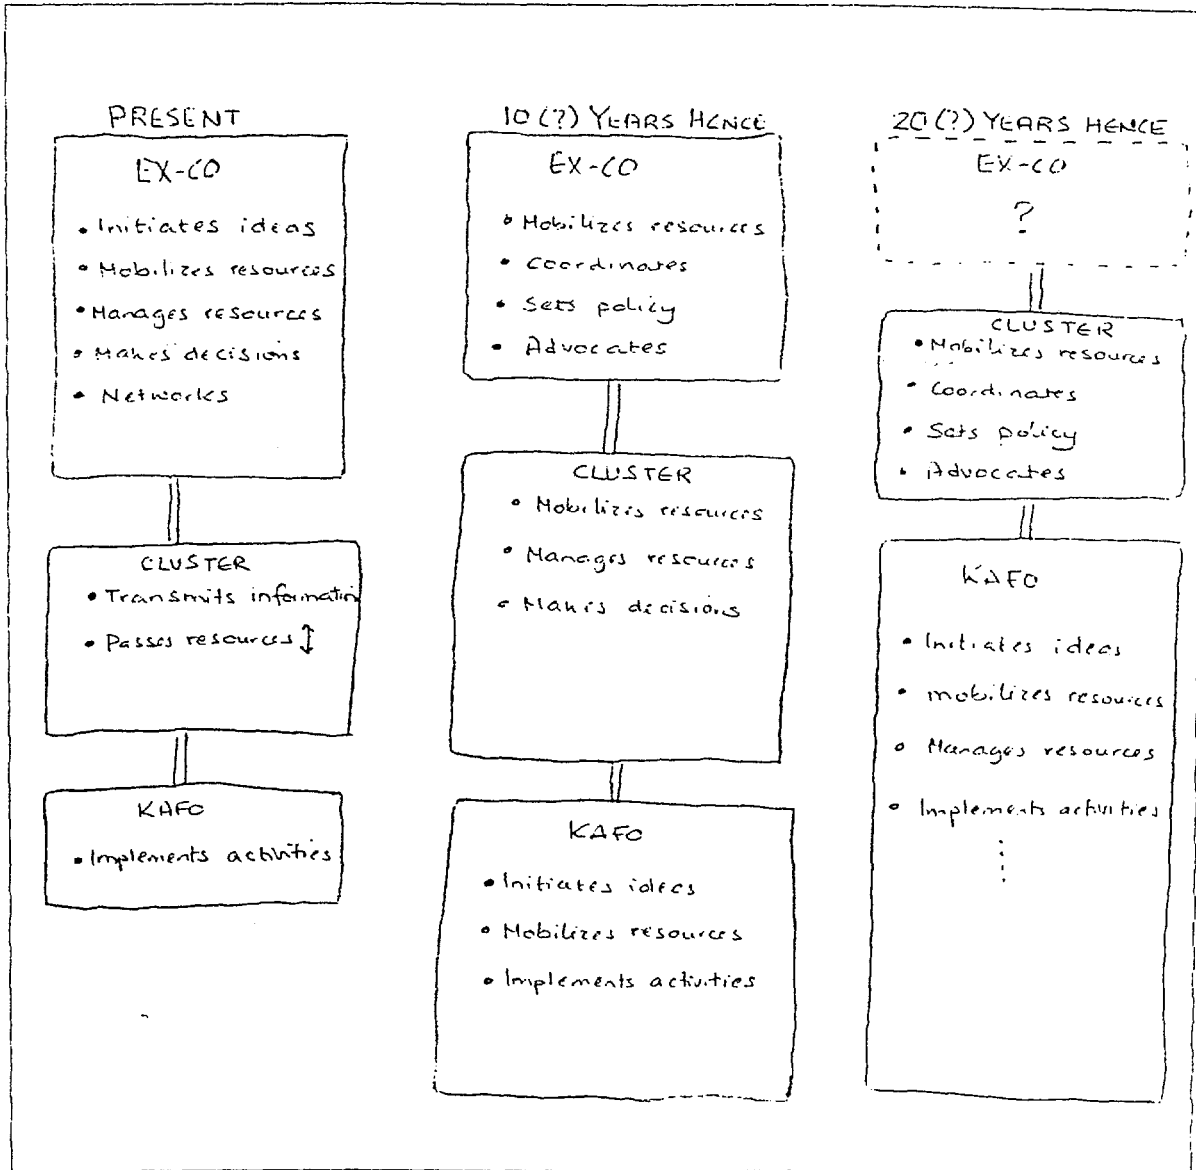 PRESENT
EX-CO
• Initiates ideas
• Mobilizes resources
• Manages resources
• Makes decisions
• Networks
CLUSTER
• Transmits information
• Passes resources ↕
KAFO
• Implements activities
10 (?) YEARS HENCE
EX-CO
• Mobilizes resources
• Coordinates
• Sets policy
• Advocates
CLUSTER
• Mobilizes resources
• Manages resources
• Makes decisions
KAFO
• Initiates ideas
• Mobilizes resources
• Implements activities
20 (?) YEARS HENCE
EX-CO
?
CLUSTER
• Mobilizes resources
• Coordinates
• Sets policy
• Advocates
KAFO
• Initiates ideas
• mobilizes resources
• Manages resources
• Implements activities